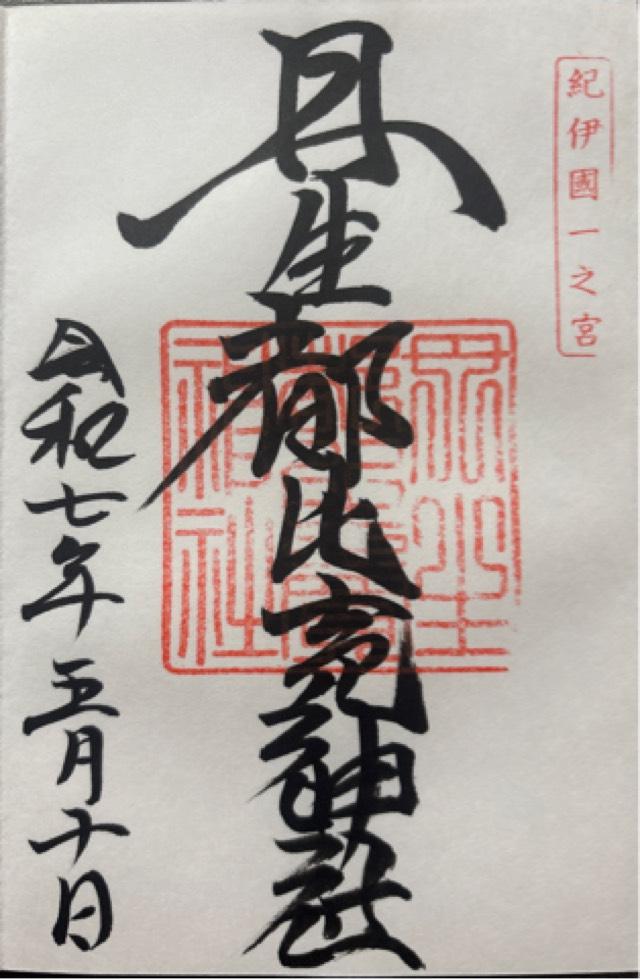 紀伊國一之宮
丹生都比売神社
令和七年五月十日